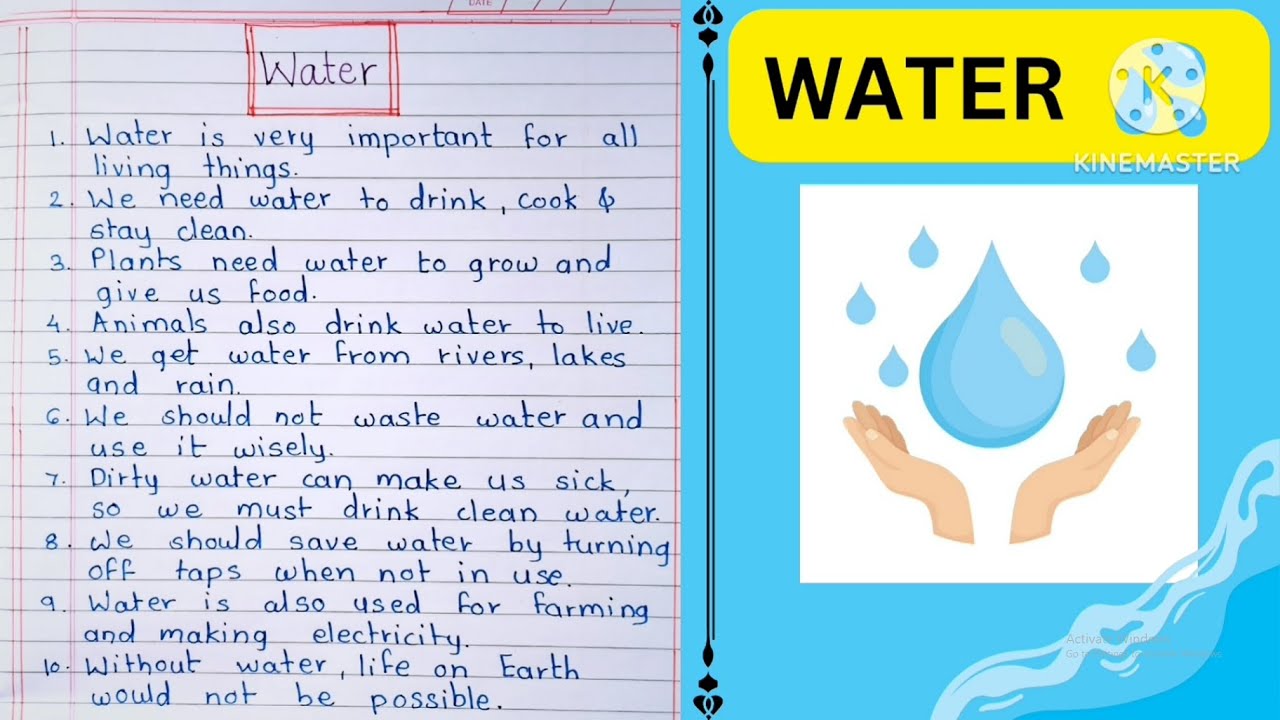 DATE
Water
1. Water is very important for all
living things.
2. We need water to drink, cook &
stay clean.
3. Plants need water to grow and
give us food.
4. Animals also drink water to live.
5. We get water from rivers, lakes
and rain.
6. We should not waste water and
use it wisely.
7. Dirty water can make us sick,
so we must drink clean water.
8. We should save water by turning
off taps when not in use.
9. Water is also used for farming
and making electricity.
10. Without water, life on Earth
would not be possible.
WATER
K
KINEMASTER
Activate Windows
Go to